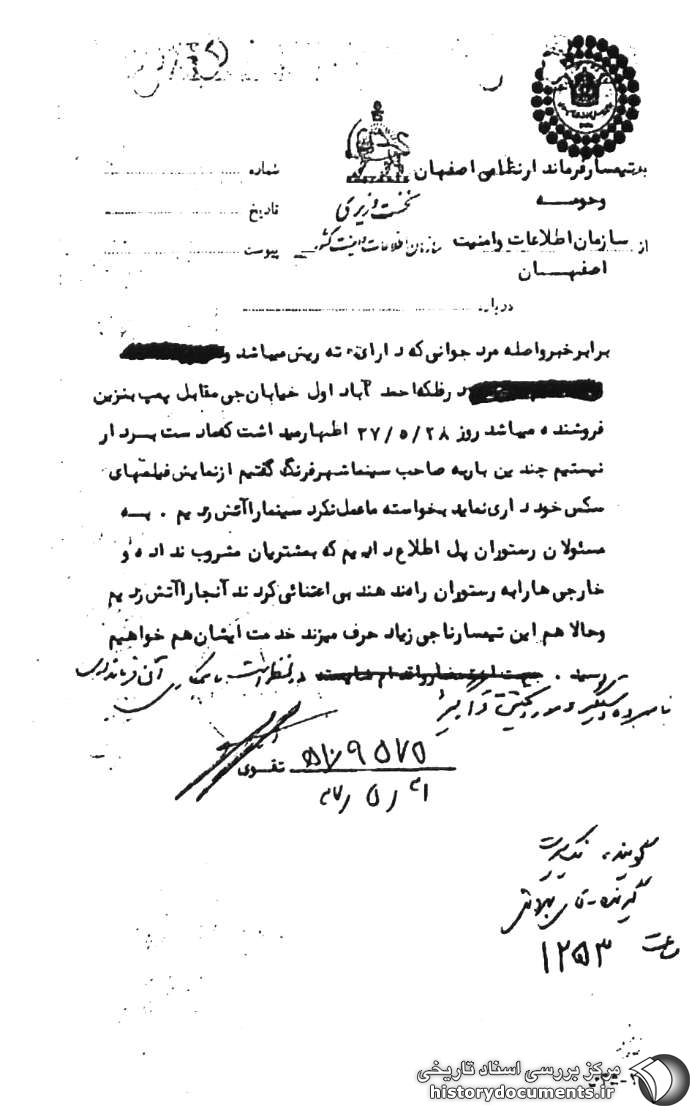 به تیمسار فرماندار نظامی اصفهان
وحومه
شماره
تاریخ
پیوست
نخست وزیری
سازمان اطلاعات و امنیت کشور
از سازمان اطلاعات وامنیت
اصفهان
درباره
برابر خبر واصله مرد جوانی که دارای ته ریش میباشد و
در فلکه احمد آباد اول خیابان جی مقابل پمپ بنزین
فروشنده میباشد روز ۲۷/۵/۲۸ اظهار میداشت که ما دست بردار
نیستیم چندین بار به صاحب سینما شهر فرنگ گفتیم از نمایش فیلمهای
سکس خود داری نماید بخواسته ما عمل نکرد سینما را آتش زدیم . به
مسئولان رستوران پل اطلاع دادیم که بمشتریان مشروب نداده و
خارجی ها را به رستوران راه ندهند بی اعتنائی کردند آنجا را آتش زدیم
وحالا هم این تیمسار ناجی زیاد حرف میزند خدمت ایشان هم خواهیم
رسید .
نامبرده دستگیر و مورد تحقیق قرار گیرد
تقوی
۲۷/۵/۳۱
گوینده
گیرنده
ساعت ۱۲۵۳
مرکز بررسی اسناد تاریخی
historydocuments.ir